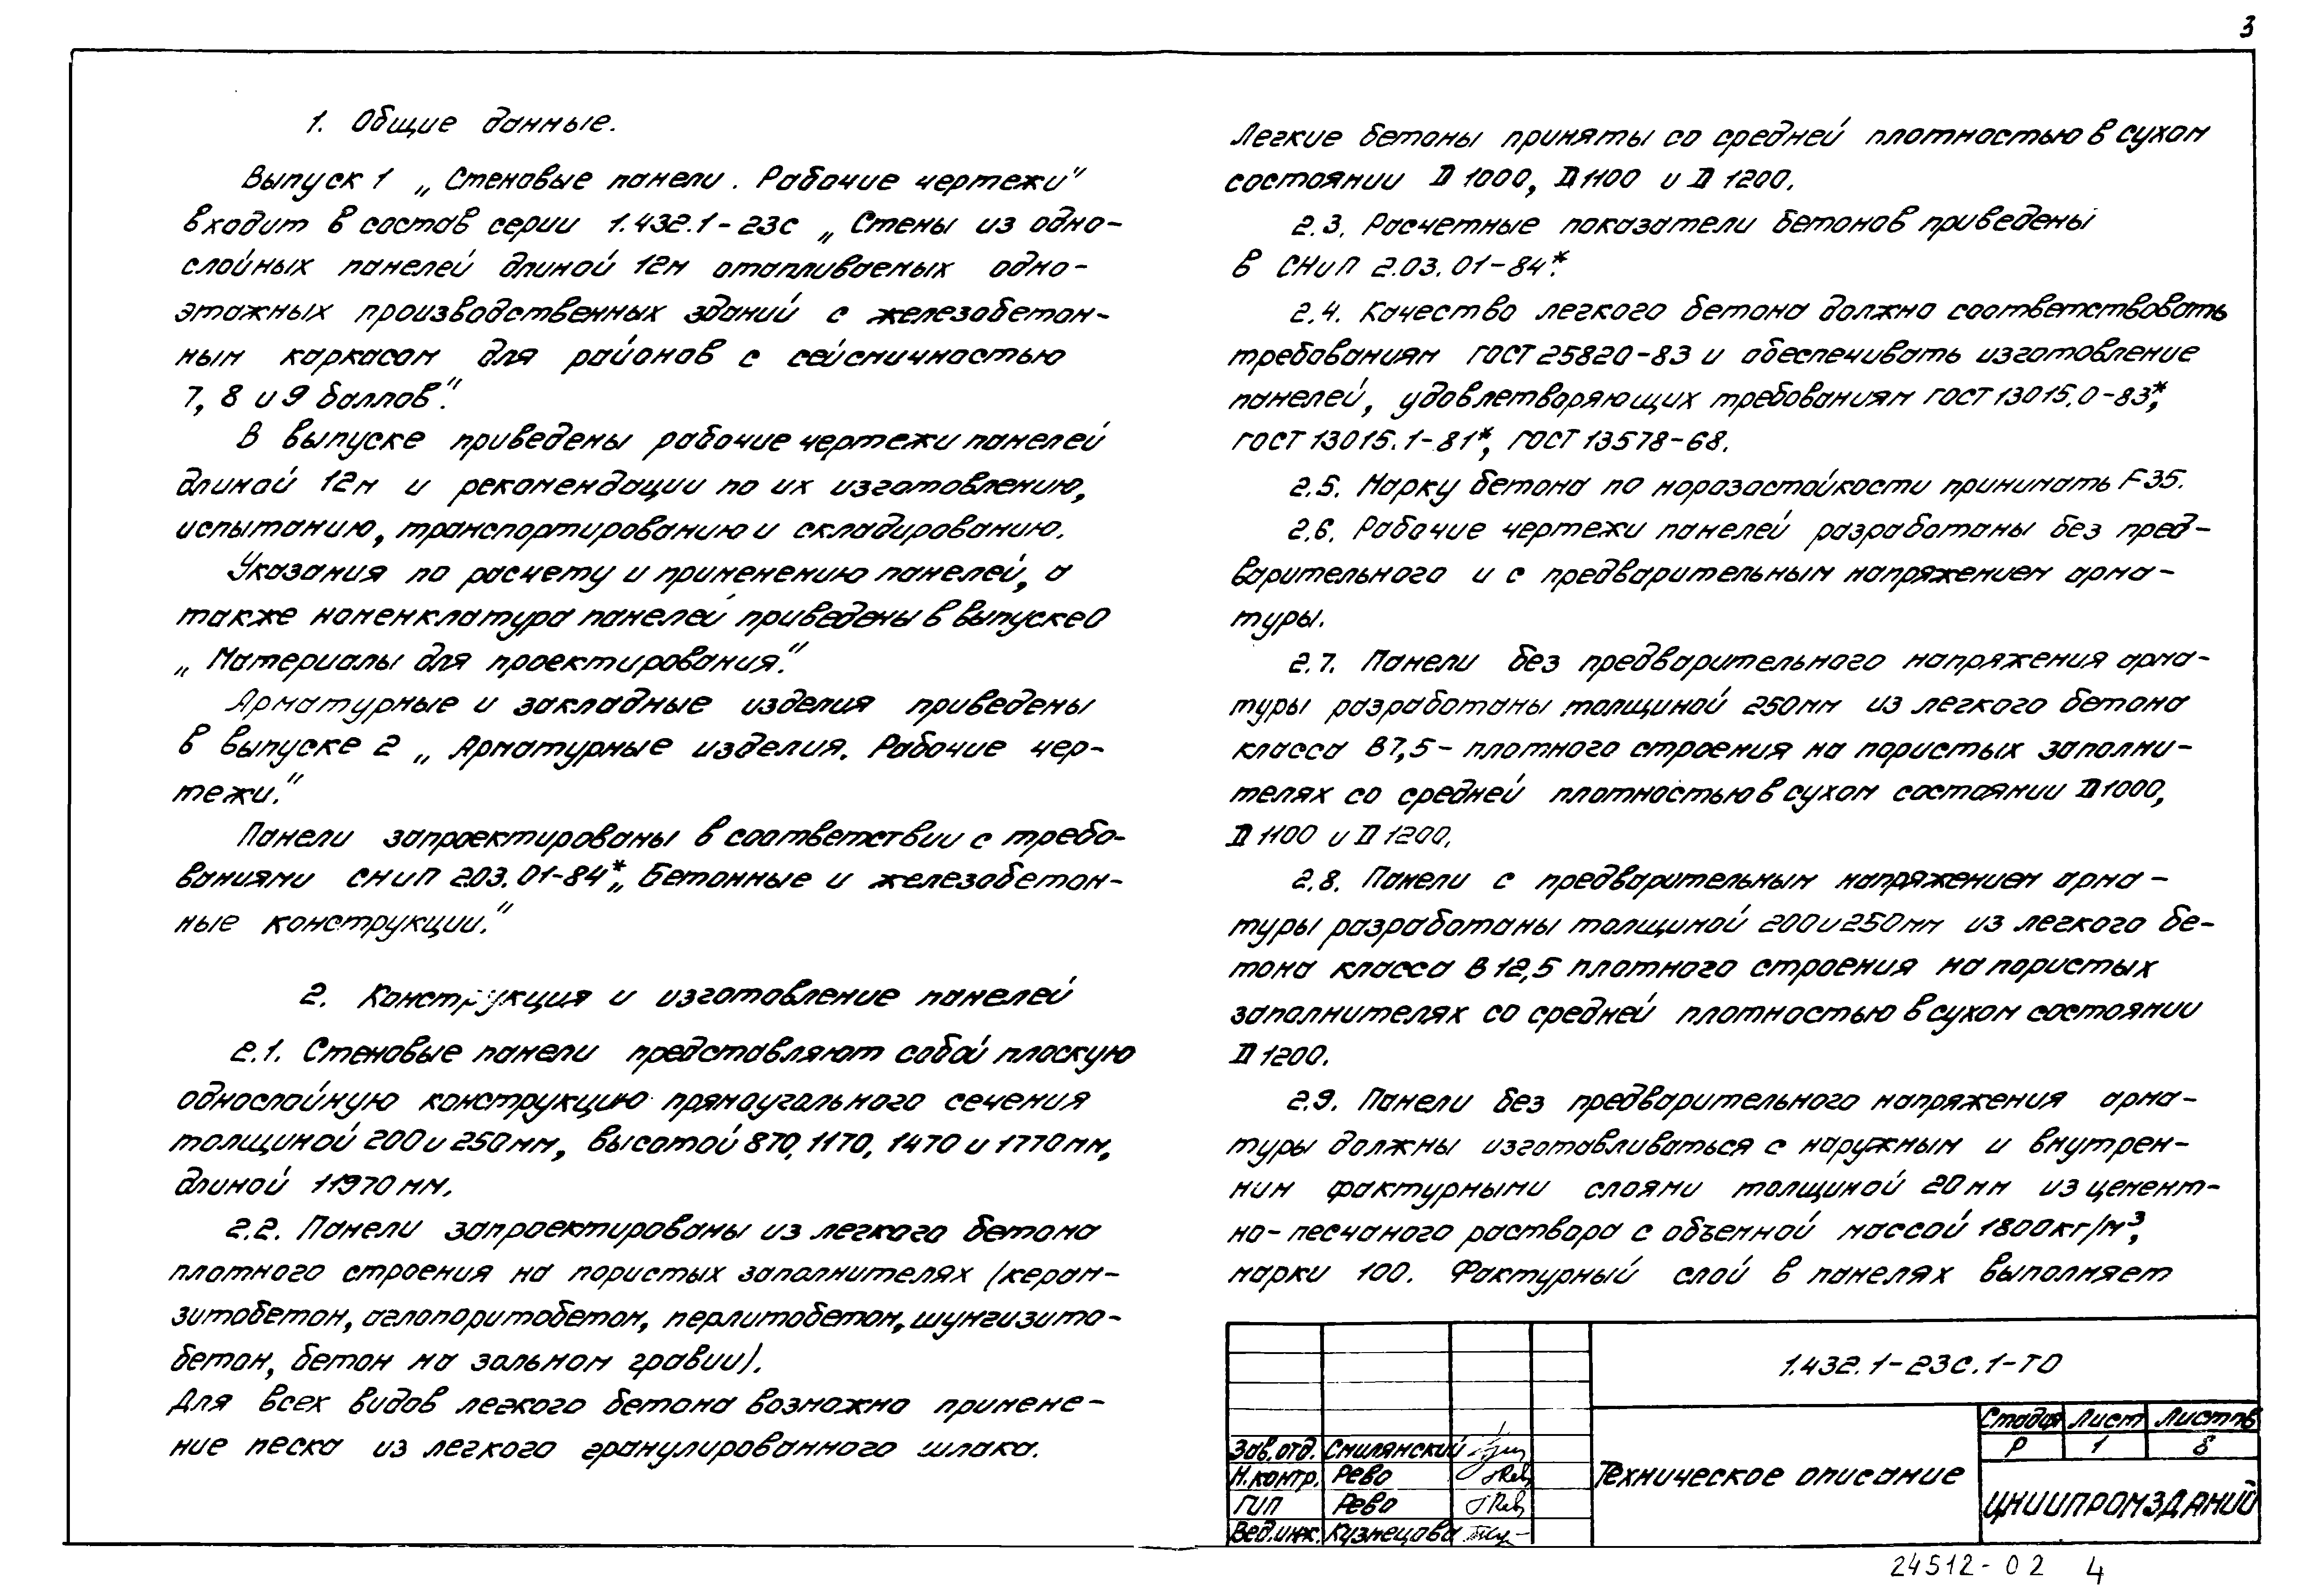 3
1. Общие данные.
Выпуск 1 „Стеновые панели. Рабочие чертежи"
входит в состав серии 1.432.1-23с „Стены из одно-
слойных панелей длиной 12м отапливаемых одно-
этажных производственных зданий с железобетон-
ным каркасом для районов с сейсмичностью
7, 8 и 9 баллов".
В выпуске приведены рабочие чертежи панелей
длиной 12м и рекомендации по их изготовлению,
испытанию, транспортированию и складированию.
Указания по расчету и применению панелей, а
также номенклатура панелей приведены в выпуске 0
„Материалы для проектирования".
Арматурные и закладные изделия приведены
в выпуске 2 „Арматурные изделия. Рабочие чер-
тежи."
Панели запроектированы в соответствии с требо-
ваниями СНиП 2.03.01-84* „Бетонные и железобетон-
ные конструкции."
2. Конструкция и изготовление панелей
2.1. Стеновые панели представляют собой плоскую
однослойную конструкцию прямоугольного сечения
толщиной 200 и 250мм, высотой 870, 1170, 1470 и 1770мм,
длиной 11970мм.
2.2. Панели запроектированы из легкого бетона
плотного строения на пористых заполнителях (керам-
зитобетон, аглопоритобетон, перлитобетон, шунгизито-
бетон, бетон на зольном гравии).
Для всех видов легкого бетона возможно примене-
ние песка из легкого гранулированного шлака.
Легкие бетоны приняты со средней плотностью в сухом
состоянии D 1000, D 1100 и D 1200.
2.3. Расчетные показатели бетонов приведены
в СНиП 2.03.01-84*.
2.4. Качество легкого бетона должно соответствовать
требованиям ГОСТ 25820-83 и обеспечивать изготовление
панелей, удовлетворяющих требованиям ГОСТ 13015.0-83*,
ГОСТ 13015.1-81*, ГОСТ 13578-68.
2.5. Марку бетона по морозостойкости принимать F35.
2.6. Рабочие чертежи панелей разработаны без пред-
варительного и с предварительным напряжением арма-
туры.
2.7. Панели без предварительного напряжения арма-
туры разработаны толщиной 250мм из легкого бетона
класса В7,5- плотного строения на пористых заполни-
телях со средней плотностью в сухом состоянии D 1000,
D 1100 и D 1200.
2.8. Панели с предварительным напряжением арма-
туры разработаны толщиной 200 и 250мм из легкого бе-
тона класса В 12,5 плотного строения на пористых
заполнителях со средней плотностью в сухом состоянии
D 1200.
2.9. Панели без предварительного напряжения арма-
туры должны изготавливаться с наружным и внутрен-
ним фактурными слоями толщиной 20мм из цемент-
но-песчаного раствора с объемной массой 1800кг/м³,
марки 100. Фактурный слой в панелях выполняет
1.432.1-23с.1-ТО
Стадия Лист Листов
Р 1 8
Зав.отд. Смилянский
Н.контр. Рево
ГИП Рево
Вед.инж. Кузнецова
Техническое описание
ЦНИИПРОМЗДАНИЙ
24512-02 4